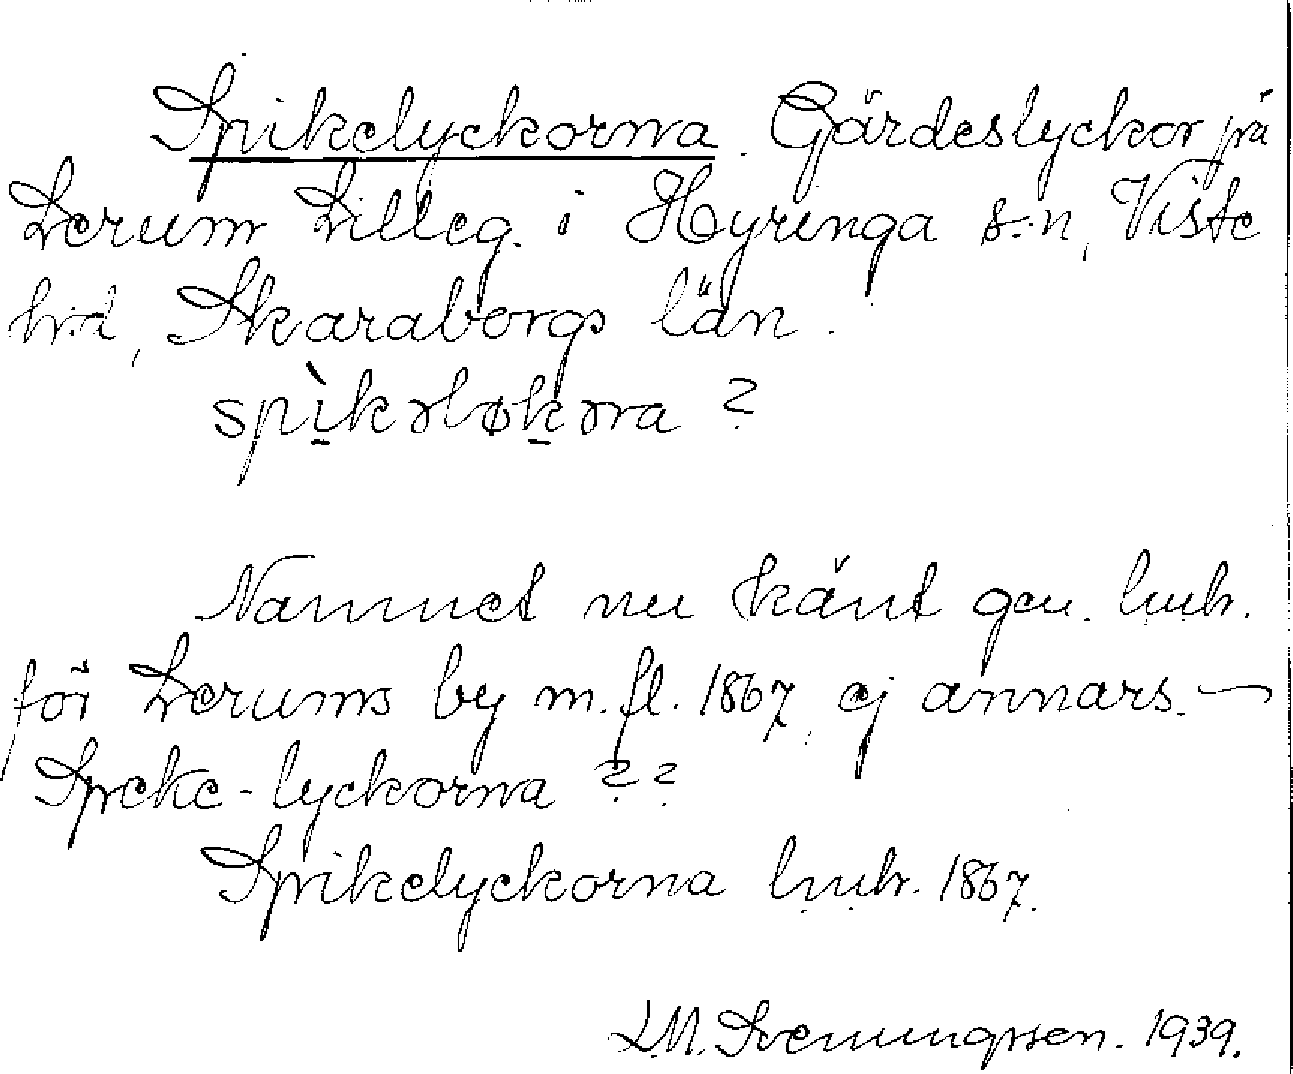 Spikelyckorna. Gärdeslyckor på
Lerum Lilleg. i Hyringa s:n, Viste
h:d, Skaraborgs län.
spìkəløkəra ?
Namnet nu känt gm. lmh.
för Lerums by m.fl. 1867, ej annars. —
Speke-lyckorna ??
Spikelyckorna lmh. 1867.
L.M. Svenungsson. 1939.